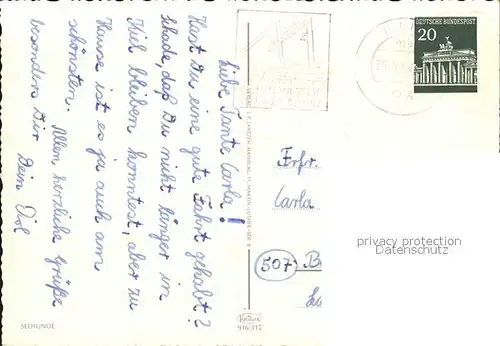 Liebe Tante Carla!
Hast Du eine gute Fahrt gehabt?
Schade, daß Du nicht länger in
Kiel bleiben konntest, aber zu
Hause ist es ja auch am
schönsten.
Allen herzliche Grüße
besonders Dir
Dein
DEUTSCHE BUNDESPOST
20
Carla
507
privacy protection
Datenschutz
SEEHUNDE
Krüger
916/312